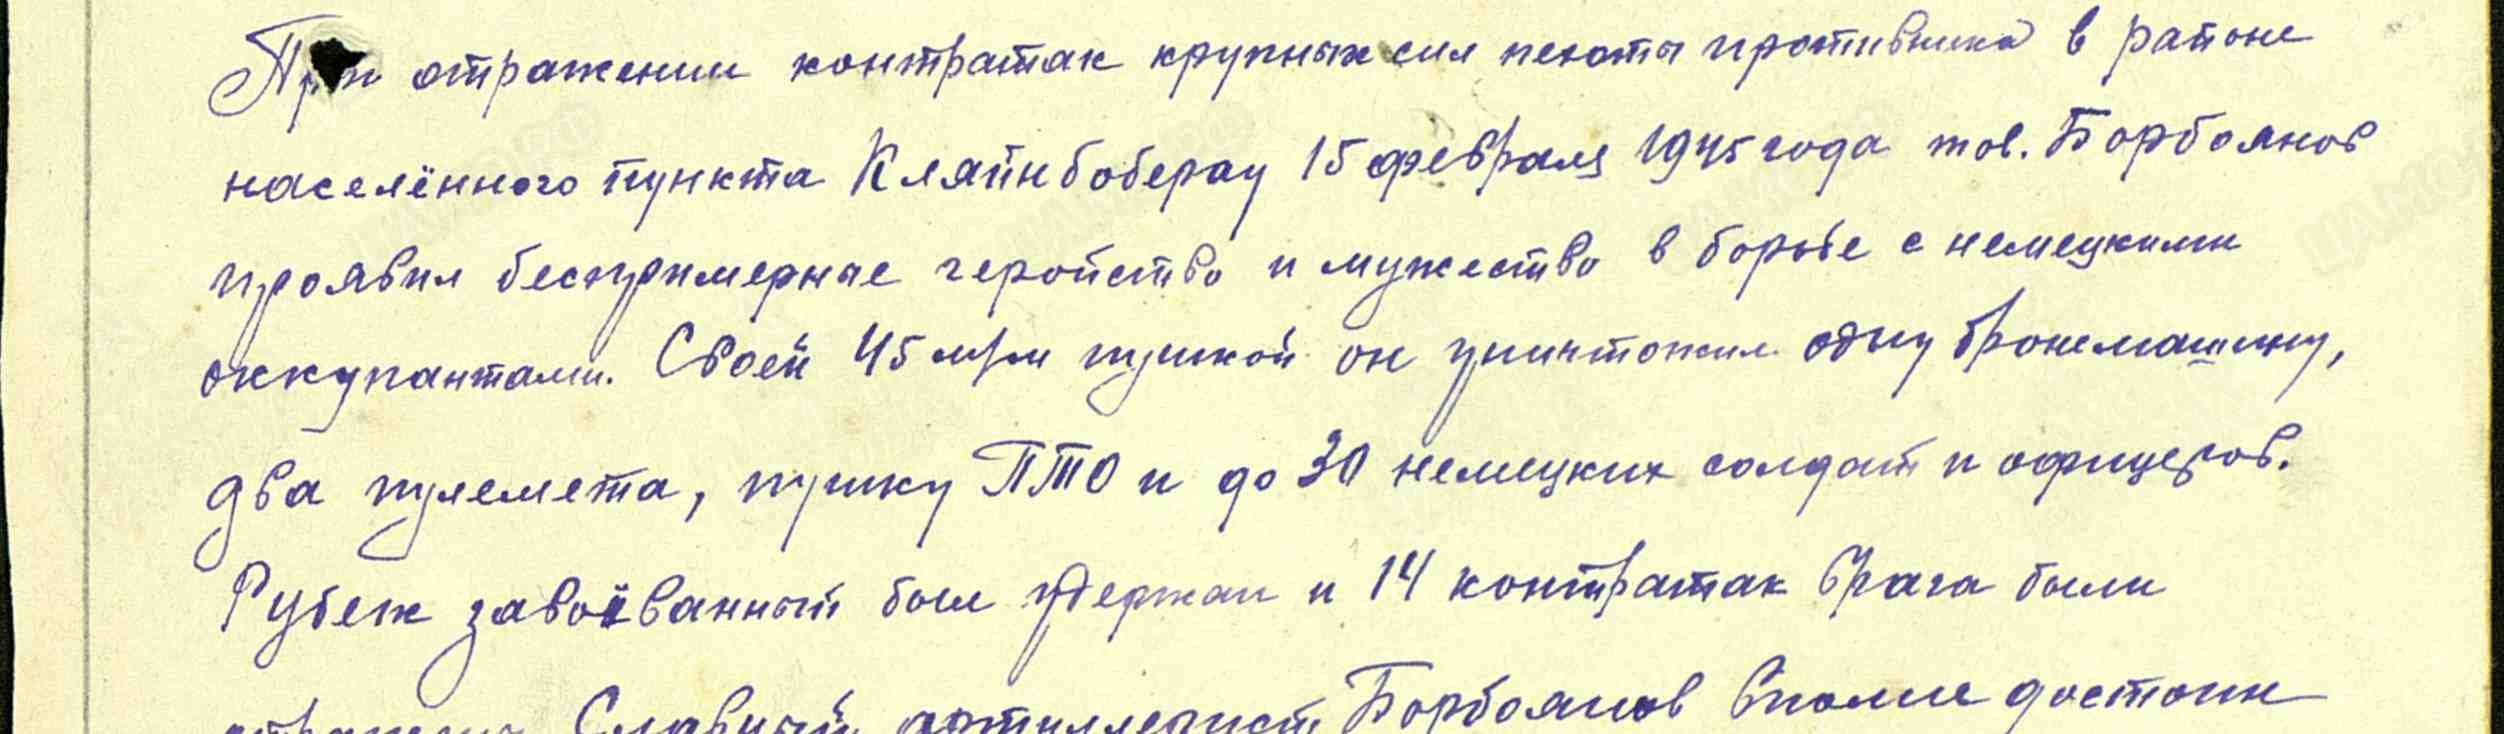 При отражении контратак крупных сил пехоты противника в районе
населённого пункта Кляйнбоберау 15 февраля 1945 года тов. Борбоянов
проявил беспримерное геройство и мужество в борьбе с немецкими
оккупантами. Своей 45 м/м пушкой он уничтожил одну бронемашину,
два пулемета, пушку ПТО и до 30 немецких солдат и офицеров.
Рубеж завоёванный был удержан и 14 контратак врага были
отражены. Славный артиллерист Борбоянов вполне достоин